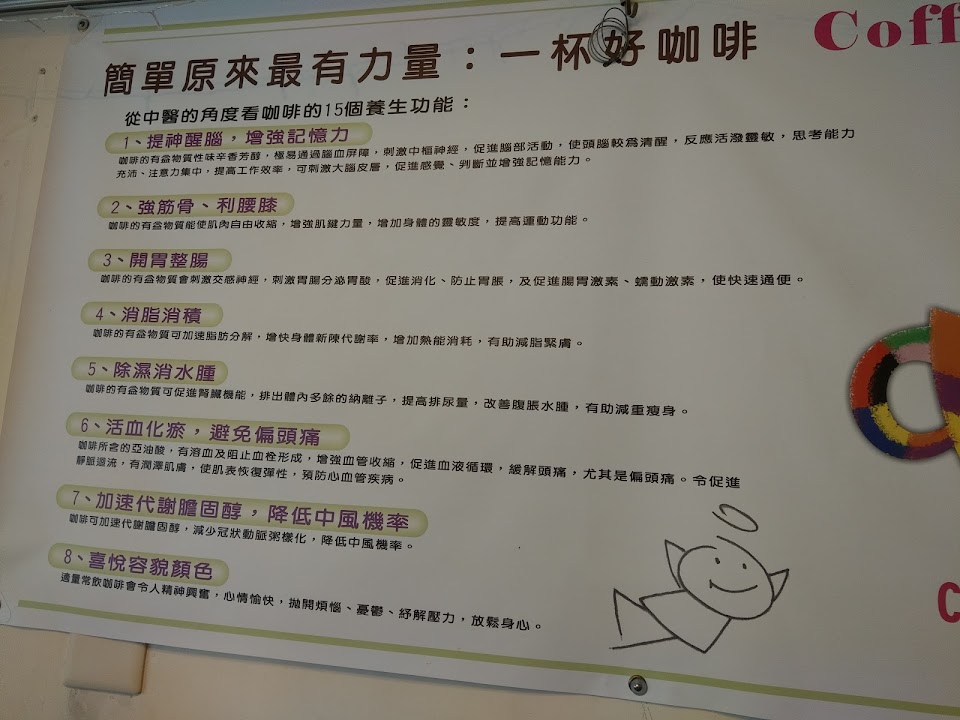 Coff
簡單原來最有力量：一杯好咖啡
從中醫的角度看咖啡的15個養生功能：
1、提神醒腦，增強記憶力
咖啡的有益物質性味辛香芳醇，極易通過腦血屏障，刺激中樞神經，促進腦部活動，使頭腦較為清醒，反應活潑靈敏，思考能力
充沛、注意力集中，提高工作效率，可刺激大腦皮層，促進感覺、判斷並增強記憶能力。
2、強筋骨、利腰膝
咖啡的有益物質能使肌肉自由收縮，增強肌腱力量，增加身體的靈敏度，提高運動功能。
3、開胃整腸
咖啡的有益物質會刺激交感神經，刺激胃腸分泌胃酸，促進消化、防止胃脹，及促進腸胃激素、蠕動激素，使快速通便。
4、消脂消積
咖啡的有益物質可加速脂肪分解，增快身體新陳代謝率，增加熱能消耗，有助減脂緊膚。
5、除濕消水腫
咖啡的有益物質可促進腎臟機能，排出體內多餘的納離子，提高排尿量，改善腹脹水腫，有助減重瘦身。
6、活血化瘀，避免偏頭痛
咖啡所含的亞油酸，有溶血及阻止血栓形成，增強血管收縮，促進血液循環，緩解頭痛，尤其是偏頭痛。令促進
靜脈迴流，有潤澤肌膚，使肌表恢復彈性，預防心血管疾病。
7、加速代謝膽固醇，降低中風機率
咖啡可加速代謝膽固醇，減少冠狀動脈粥樣化，降低中風機率。
8、喜悅容貌顏色
適量常飲咖啡會令人精神興奮，心情愉快，拋開煩惱、憂鬱、紓解壓力，放鬆身心。
C